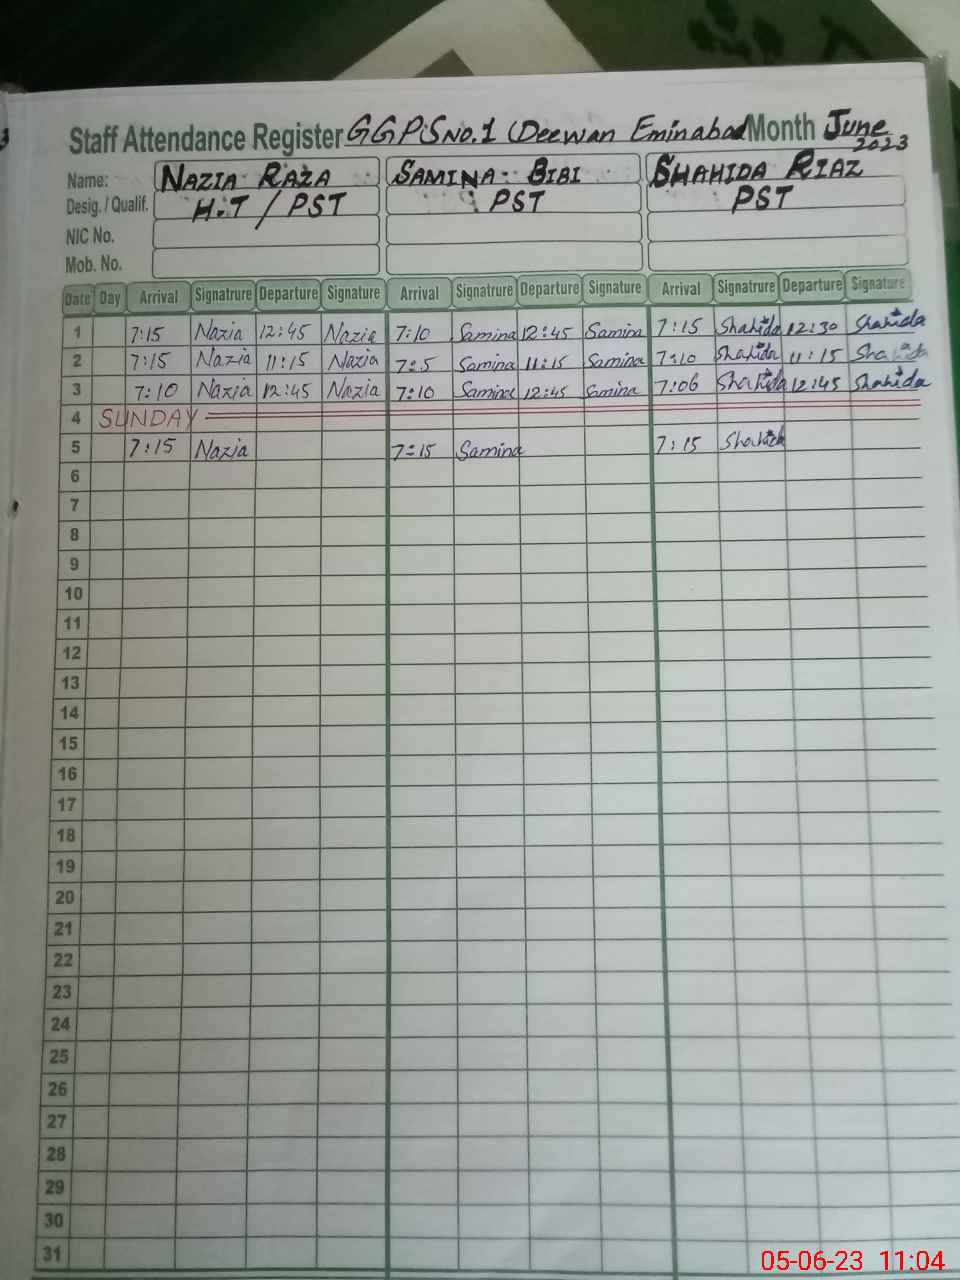 Staff Attendance Register GGPS No.1 (Deewan Eminabad Month June 2023
Name: NAZIA RAZA SAMINA BIBI SHAHIDA RIAZ
Desig. / Qualif. H.T / PST PST PST
NIC No.
Mob. No.
Date Day Arrival Signatrure Departure Signature Arrival Signatrure Departure Signature Arrival Signatrure Departure Signature
1 7:15 Nazia 12:45 Nazia 7:10 Samina 12:45 Samina 7:15 Shahida 12:30 Shahida
2 7:15 Nazia 11:15 Nazia 7:5 Samina 11:15 Samina 7:10 Shahida 11:15 Shahida
3 7:10 Nazia 12:45 Nazia 7:10 Samina 12:45 Samina 7:06 Shahida 12:45 Shahida
4 SUNDAY
5 7:15 Nazia 7:15 Samina 7:15 Shahida
6
7
8
9
10
11
12
13
14
15
16
17
18
19
20
21
22
23
24
25
26
27
28
29
30
31
05-06-23 11:04